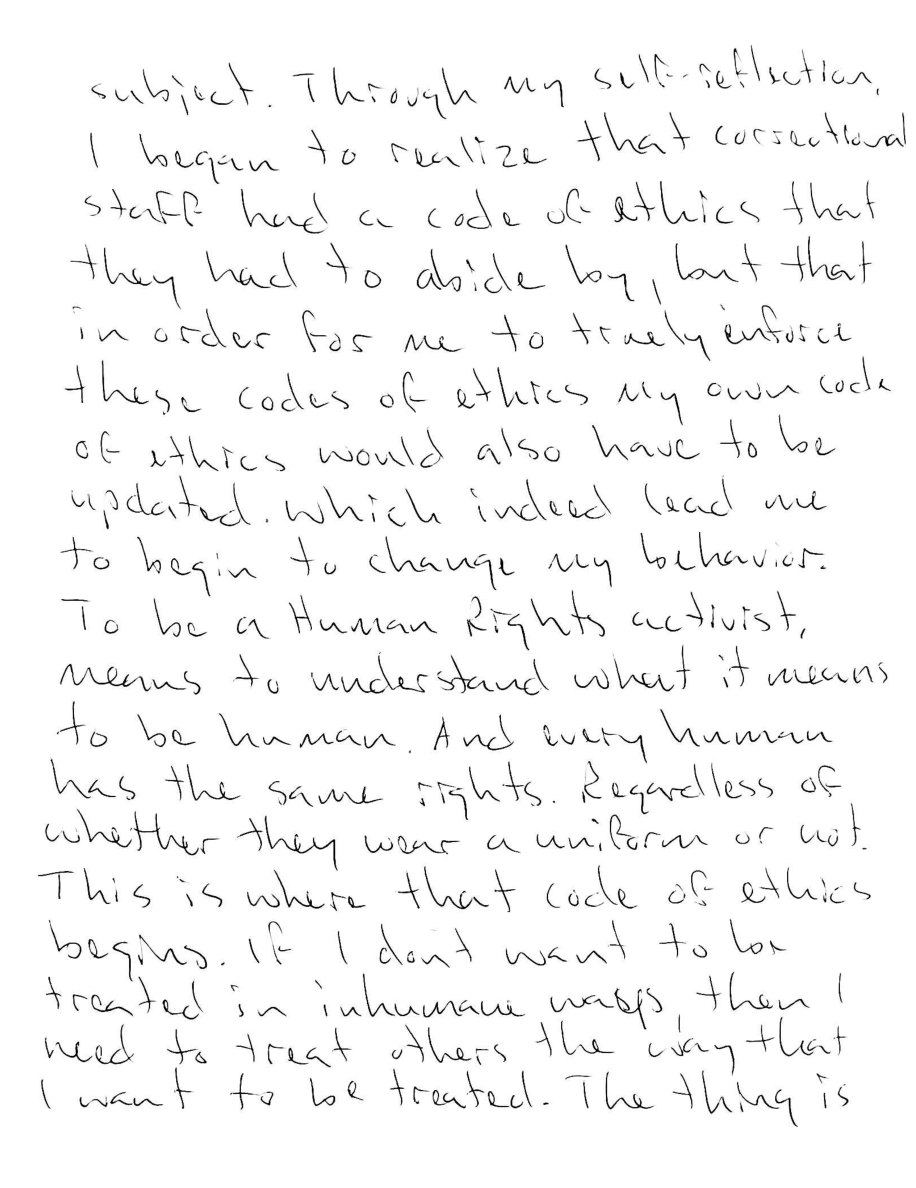 subject. Through my self-reflection,
I began to realize that correctional
staff had a code of ethics that
they had to abide by, but that
in order for me to truely enforce
these codes of ethics my own code
of ethics would also have to be
updated. Which indeed lead me
to begin to change my behavior.
To be a Human Rights activist,
means to understand what it means
to be human. And every human
has the same rights. Regardless of
whether they wear a uniform or not.
This is where that code of ethics
begins. If I don't want to be
treated in inhumane ways, then I
need to treat others the way that
I want to be treated. The thing is